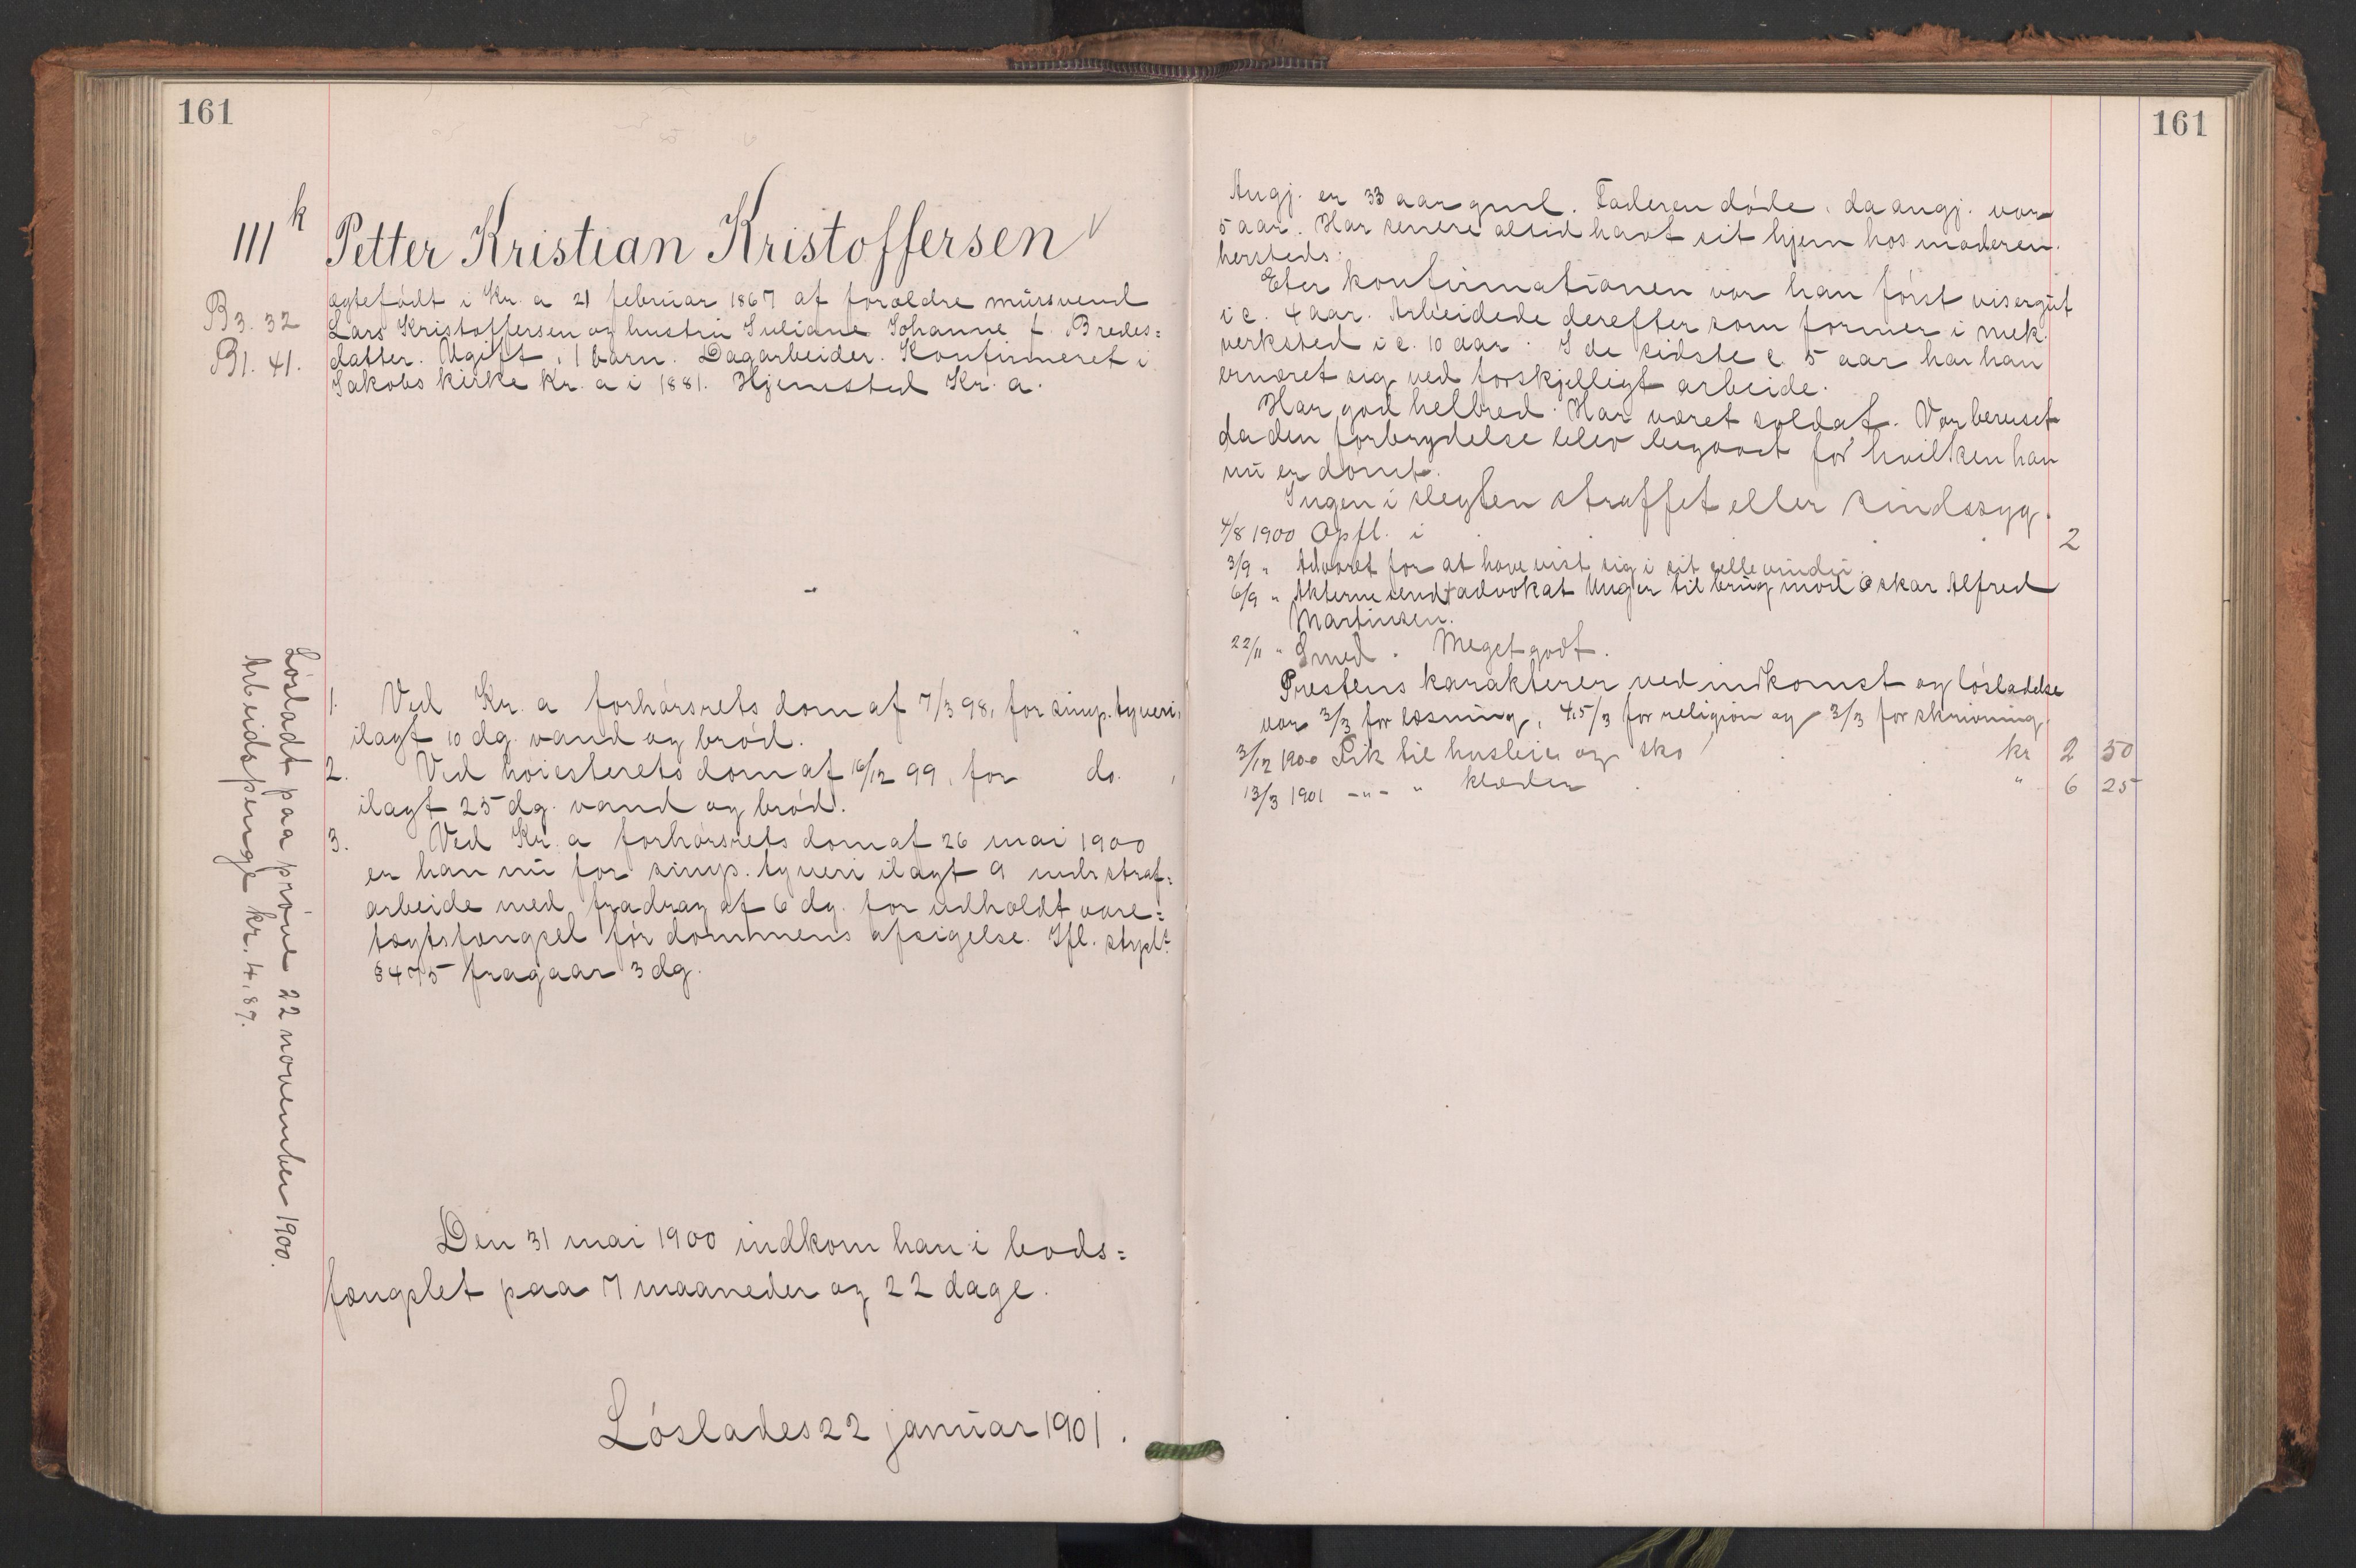 161
111k Petter Kristian Kristoffersen
B3. 32
B1. 41.
ægtefødt i Kr. a 21 februar 1867 af forældre mursvend
Lars Kristoffersen og hustru Juliane Johanne f. Bredes=
datter. Ugift, 1 barn. Dagarbeider. Konfirmeret i
Jakobs kirke Kr. a i 1881. Hjemsted Kr. a.
1. Ved Kr. a forhørsrets dom af 7/3 98, for simp. tyveri,
ilagt 10 dg. vand og brød.
2. Ved høiesterets dom af 16/12 99, for do. ,
ilagt 25 dg. vand og brød.
3. Ved Kr. a forhørsrets dom af 26 mai 1900
er han nu for simp. tyveri ilagt 9 mdr straf=
arbeide med fradrag af 6 dg. for udholdt vare=
tægtsfængsel før dommens afsigelse. Ifl.
§ 475 fragaar 3 dg.
Løsladt paa prøve 22 november 1900.
Arbeidspenge kr. 4,89.
Den 31 mai 1900 indkom han i bods=
fængslet paa 7 maaneder og 22 dage.
Løslades 22 januar 1901.
161
Angj. er 33 aar gml. Faderen døde, da angj. var
5 aar. Har senere altid havt sit hjem hos moderen
hersteds.
Efter konfirmationen var han først visergut
i c. 4 aar. Arbeidede derefter som former i mek.
verksted i c. 10 aar. I de sidste c. 5 aar har han
ernæret sig ved forskjelligt arbeide.
Har god helbred. Har været soldat. Var beruset
da den forbrydelse blev begaaet for hvilken han
nu er dømt.
Ingen i slegten straffet eller sindssyg.
4/8 1900 Opfl. i . . . 2
3/9 " Advaret for at have vist sig i sit cellevindu.
6/9 " Akterne sendt advokat Unger til brug mod Oskar Alfred
Martinsen.
22/11 " Smed. Meget godt.
Prestens karakterer ved indkomst og løsladelse
var 3/3 for læsning, 4,5/3 for religion og 3/3 for skrivning.
3/12 1900 Fik til husleie og sko . kr 2 50
13/3 1901 -"- " klæder . . " 6 25